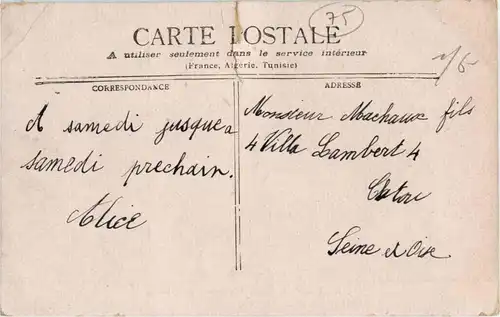 75
CARTE POSTALE
A utiliser seulement dans le service intérieur
(France, Algérie, Tunisie)
CORRESPONDANCE
A samedi jusque a
samedi prechain.
Alice
ADRESSE
Monsieur Machaux fils
4 Villa Lambert 4
Chatou
Seine et Oise